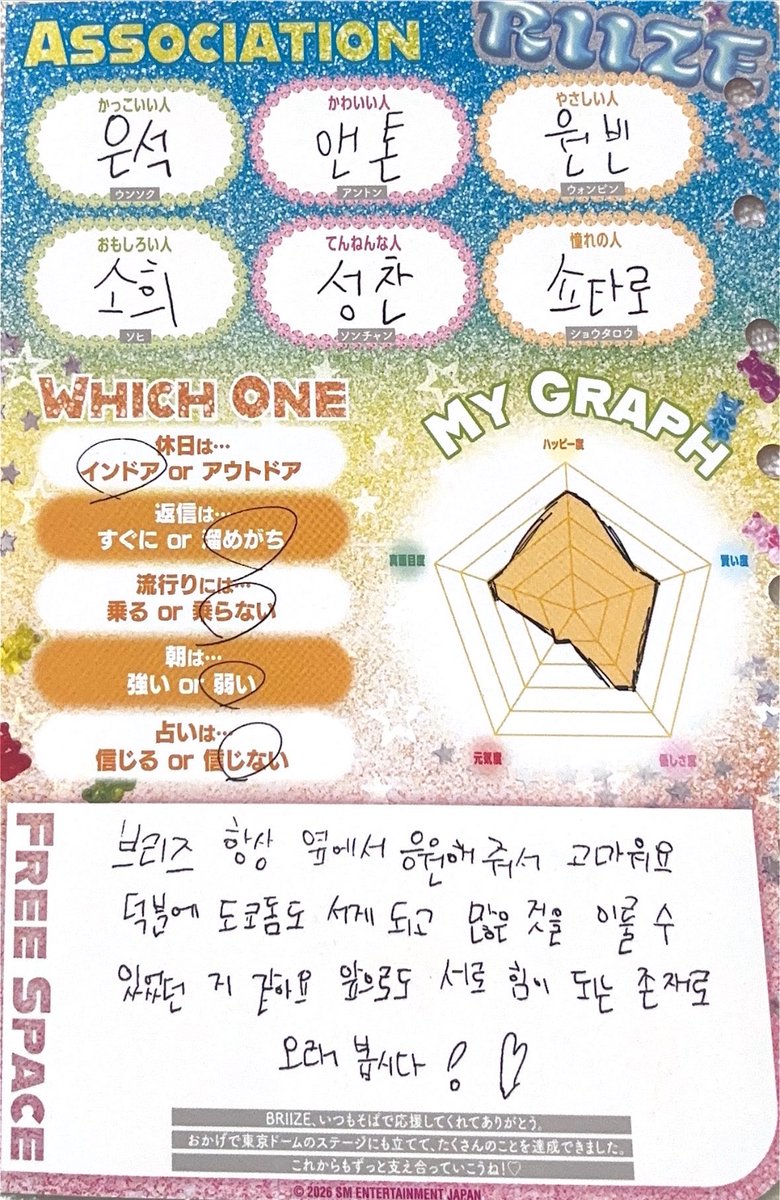 ASSOCIATION
RIIZE
かっこいい人
은석
ウンソク
かわいい人
앤톤
アントン
やさしい人
원빈
ウォンビン
おもしろい人
소희
ソヒ
てんねんな人
성찬
ソンチャン
憧れの人
쇼타로
ショウタロウ
WHICH ONE
休日は…
インドア or アウトドア
返信は…
すぐに or 溜めがち
流行りには…
乗る or 乗らない
朝は…
強い or 弱い
占いは…
信じる or 信じない
MY GRAPH
ハッピー度
賢い度
優しさ度
元気度
真面目度
FREE SPACE
브리즈 항상 옆에서 응원해 줘서 고마워요
덕분에 도쿄돔도 서게 되고 많은 것을 이룰 수
있었던 거 같아요 앞으로도 서로 힘이 되는 존재로
오래 봅시다! ♡
BRIIZE、いつもそばで応援してくれてありがとう。
おかげで東京ドームのステージにも立てて、たくさんのことを達成できました。
これからもずっと支え合っていこうね!♡
© 2026 SM ENTERTAINMENT JAPAN